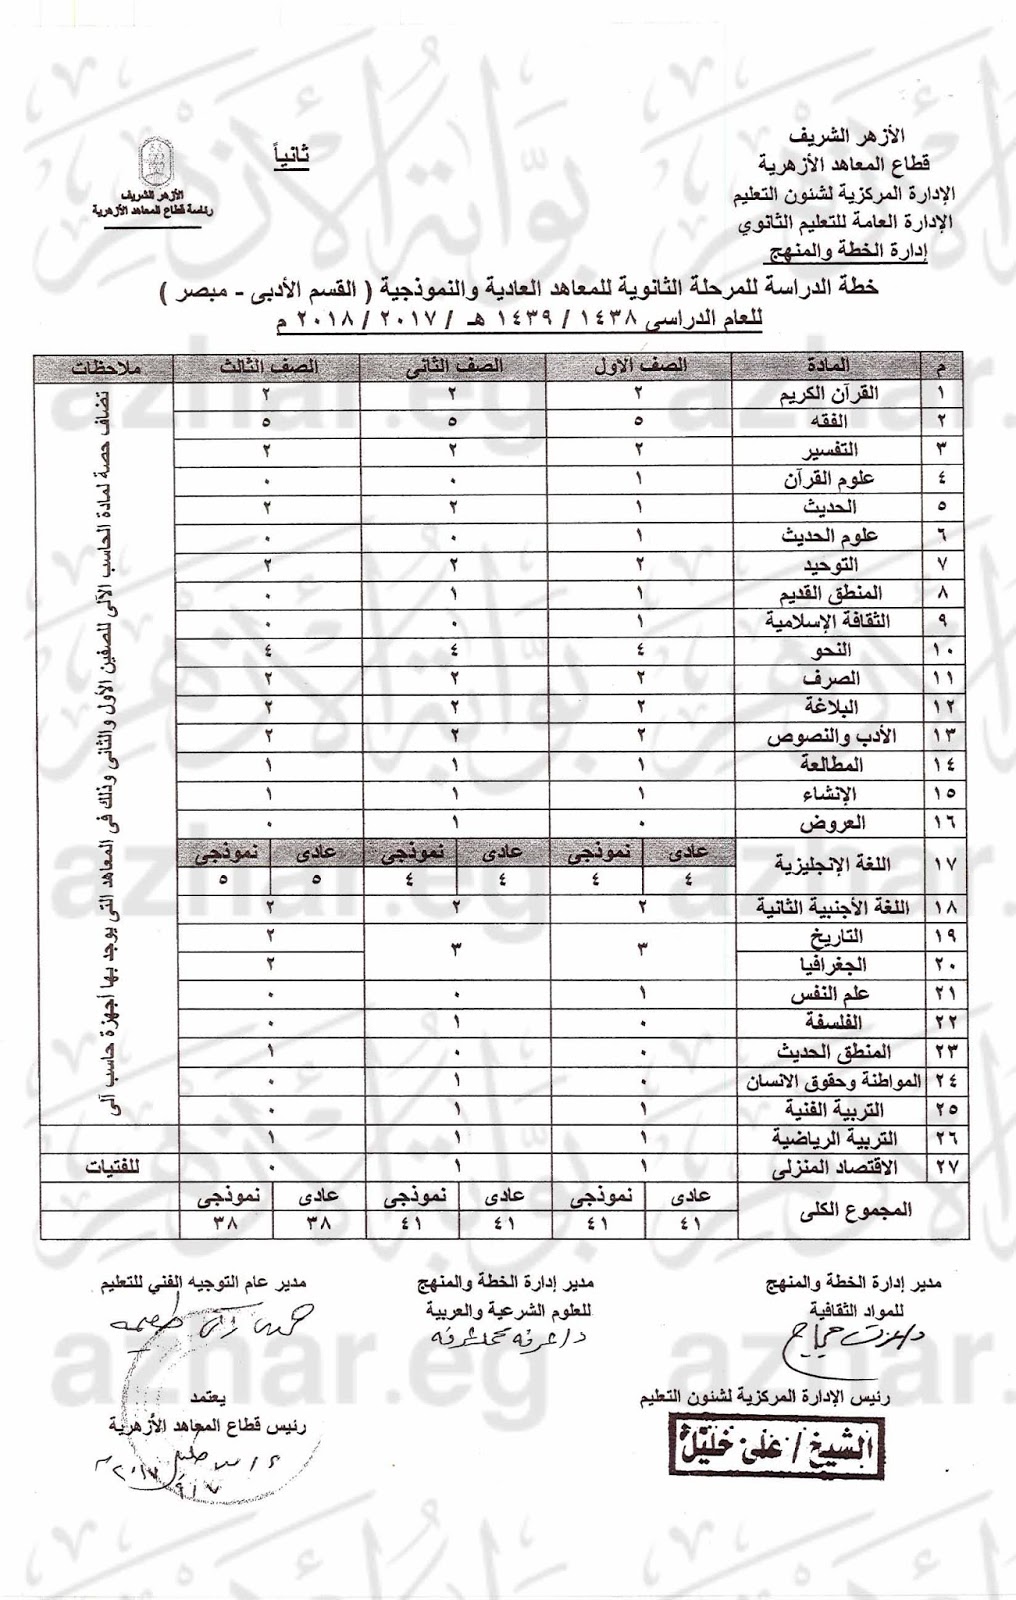 الأزهر الشريف
قطاع المعاهد الأزهرية
الإدارة المركزية لشئون التعليم
الإدارة العامة للتعليم الثانوي
إدارة الخطة والمنهج
ثانياً
الأزهر الشريف
رئاسة قطاع المعاهد الأزهرية
خطة الدراسة للمرحلة الثانوية للمعاهد العادية والنموذجية ( القسم الأدبى - مبصر )
للعام الدراسى ١٤٣٨ / ١٤٣٩ هـ / ٢٠١٧ / ٢٠١٨ م
م المادة الصف الاول الصف الثانى الصف الثالث ملاحظات
١ القرآن الكريم ٢ ٢ ٢
٢ الفقه ٥ ٥ ٥
٣ التفسير ٢ ٢ ٢
٤ علوم القرآن ١ ٠ ٠
٥ الحديث ١ ٢ ٢
٦ علوم الحديث ١ ٠ ٠
٧ التوحيد ٢ ٢ ٢
٨ المنطق القديم ١ ١ ٠
٩ الثقافة الإسلامية ١ ٠ ٠
١٠ النحو ٤ ٤ ٤
١١ الصرف ٢ ٢ ٢
١٢ البلاغة ٢ ٢ ٢
١٣ الأدب والنصوص ٢ ٢ ٢
١٤ المطالعة ١ ١ ١
١٥ الإنشاء ١ ١ ١
١٦ العروض ٠ ١ ٠
١٧ اللغة الإنجليزية عادى نموذجى عادى نموذجى عادى نموذجى
٤ ٤ ٤ ٤ ٥ ٥
١٨ اللغة الأجنبية الثانية ٢ ٢ ٢
١٩ التاريخ ٣ ٣ ٢
٢٠ الجغرافيا ٢
٢١ علم النفس ١ ٠ ٠
٢٢ الفلسفة ٠ ١ ٠
٢٣ المنطق الحديث ٠ ٠ ١
٢٤ المواطنة وحقوق الانسان ٠ ١ ٠
٢٥ التربية الفنية ١ ١ ٠
٢٦ التربية الرياضية ١ ١ ١
٢٧ الاقتصاد المنزلى ١ ١ ٠ للفتيات
المجموع الكلى عادى نموذجى عادى نموذجى عادى نموذجى
٤١ ٤١ ٤١ ٤١ ٣٨ ٣٨
تضاف حصة لمادة الحاسب الآلى للصفين الأول والثانى وذلك فى المعاهد التى يوجد بها أجهزة حاسب آلى
مدير إدارة الخطة والمنهج
للمواد الثقافية
د/عزت حجاج
مدير إدارة الخطة والمنهج
للعلوم الشرعية والعربية
د/عرفه محمد شرقه
مدير عام التوجيه الفني للتعليم
رئيس الإدارة المركزية لشئون التعليم
الشيخ/على خليل
يعتمد
رئيس قطاع المعاهد الأزهرية
بوابة الأزهر
azhar.eg